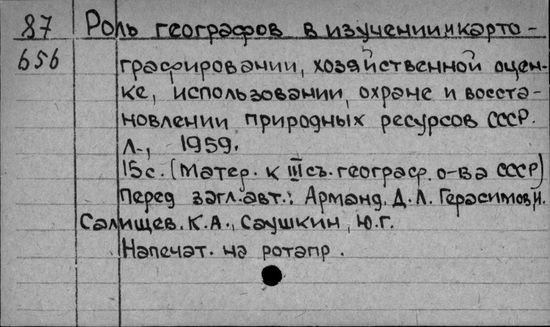 87 Роль географов в изучении и карто-
656 графировании, хозяйственной оцен-
ке, использовании, охране и восста-
новлении природных ресурсов СССР.
Л., 1959.
15с. (Матер. к III съ. географ. о-ва СССР)
Перед загл. авт.: Арманд. Д. Л. Герасимов И.
Салищев. К.А., Саушкин, Ю.Г.
Напечат. на ротапр.